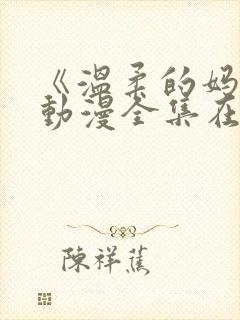 《温柔的妈
動漫全集在
陳祥蕉